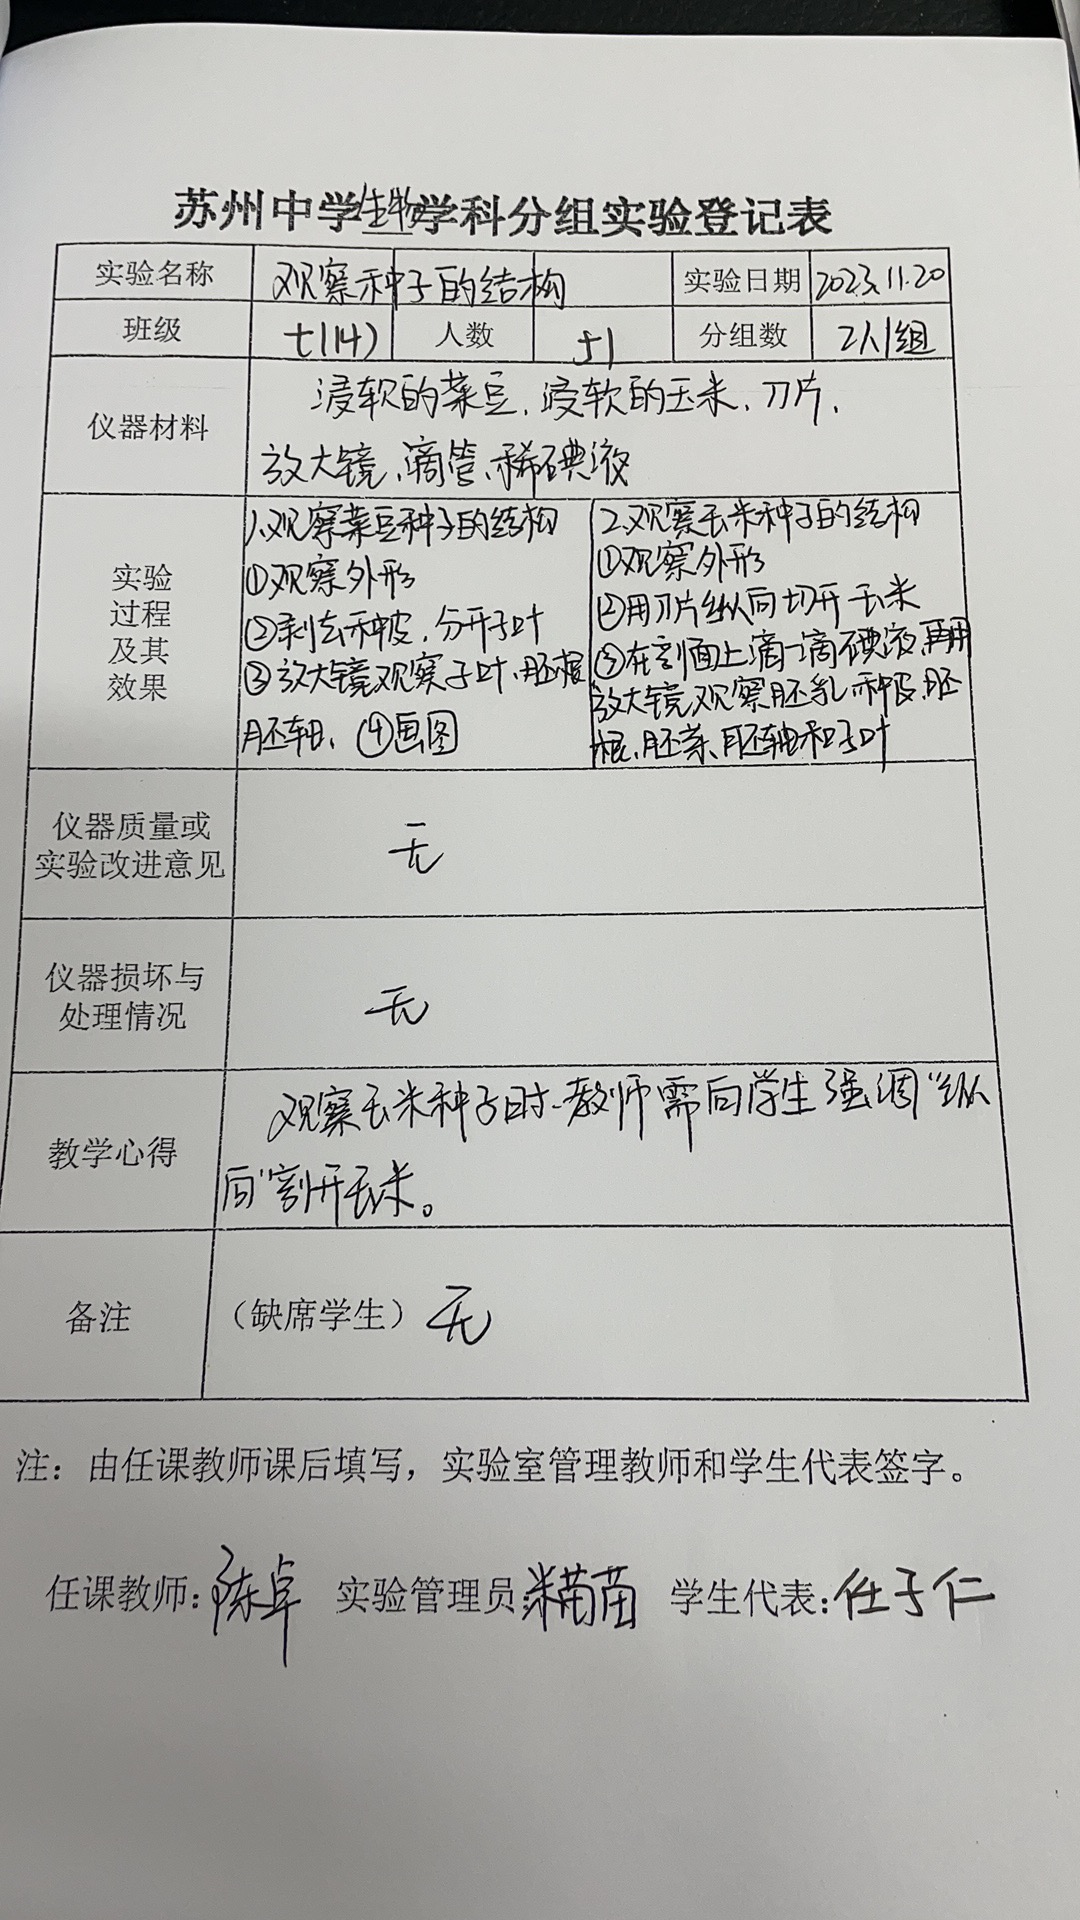 苏州中学生物学科分组实验登记表
实验名称 观察种子的结构 实验日期 2023.11.20
班级 七(14) 人数 51 分组数 2人1组
仪器材料
浸软的菜豆、浸软的玉米、刀片、
放大镜、滴管、稀碘液
实验
过程
及其
效果
1.观察菜豆种子的结构
①观察外形
②剥去种皮,分开子叶
③放大镜观察子叶、胚根
胚轴、④画图
2.观察玉米种子的结构
①观察外形
②用刀片纵向切开玉米
③在剖面上滴一滴碘液,再用
放大镜观察胚乳、种皮、胚
根、胚芽、胚轴和子叶
仪器质量或
实验改进意见
无
仪器损坏与
处理情况
无
教学心得
观察玉米种子时,教师需向学生强调“纵
向”割开玉米。
备注 (缺席学生) 无
注:由任课教师课后填写,实验室管理教师和学生代表签字。
任课教师:陈卓 实验管理员: 学生代表:任于仁